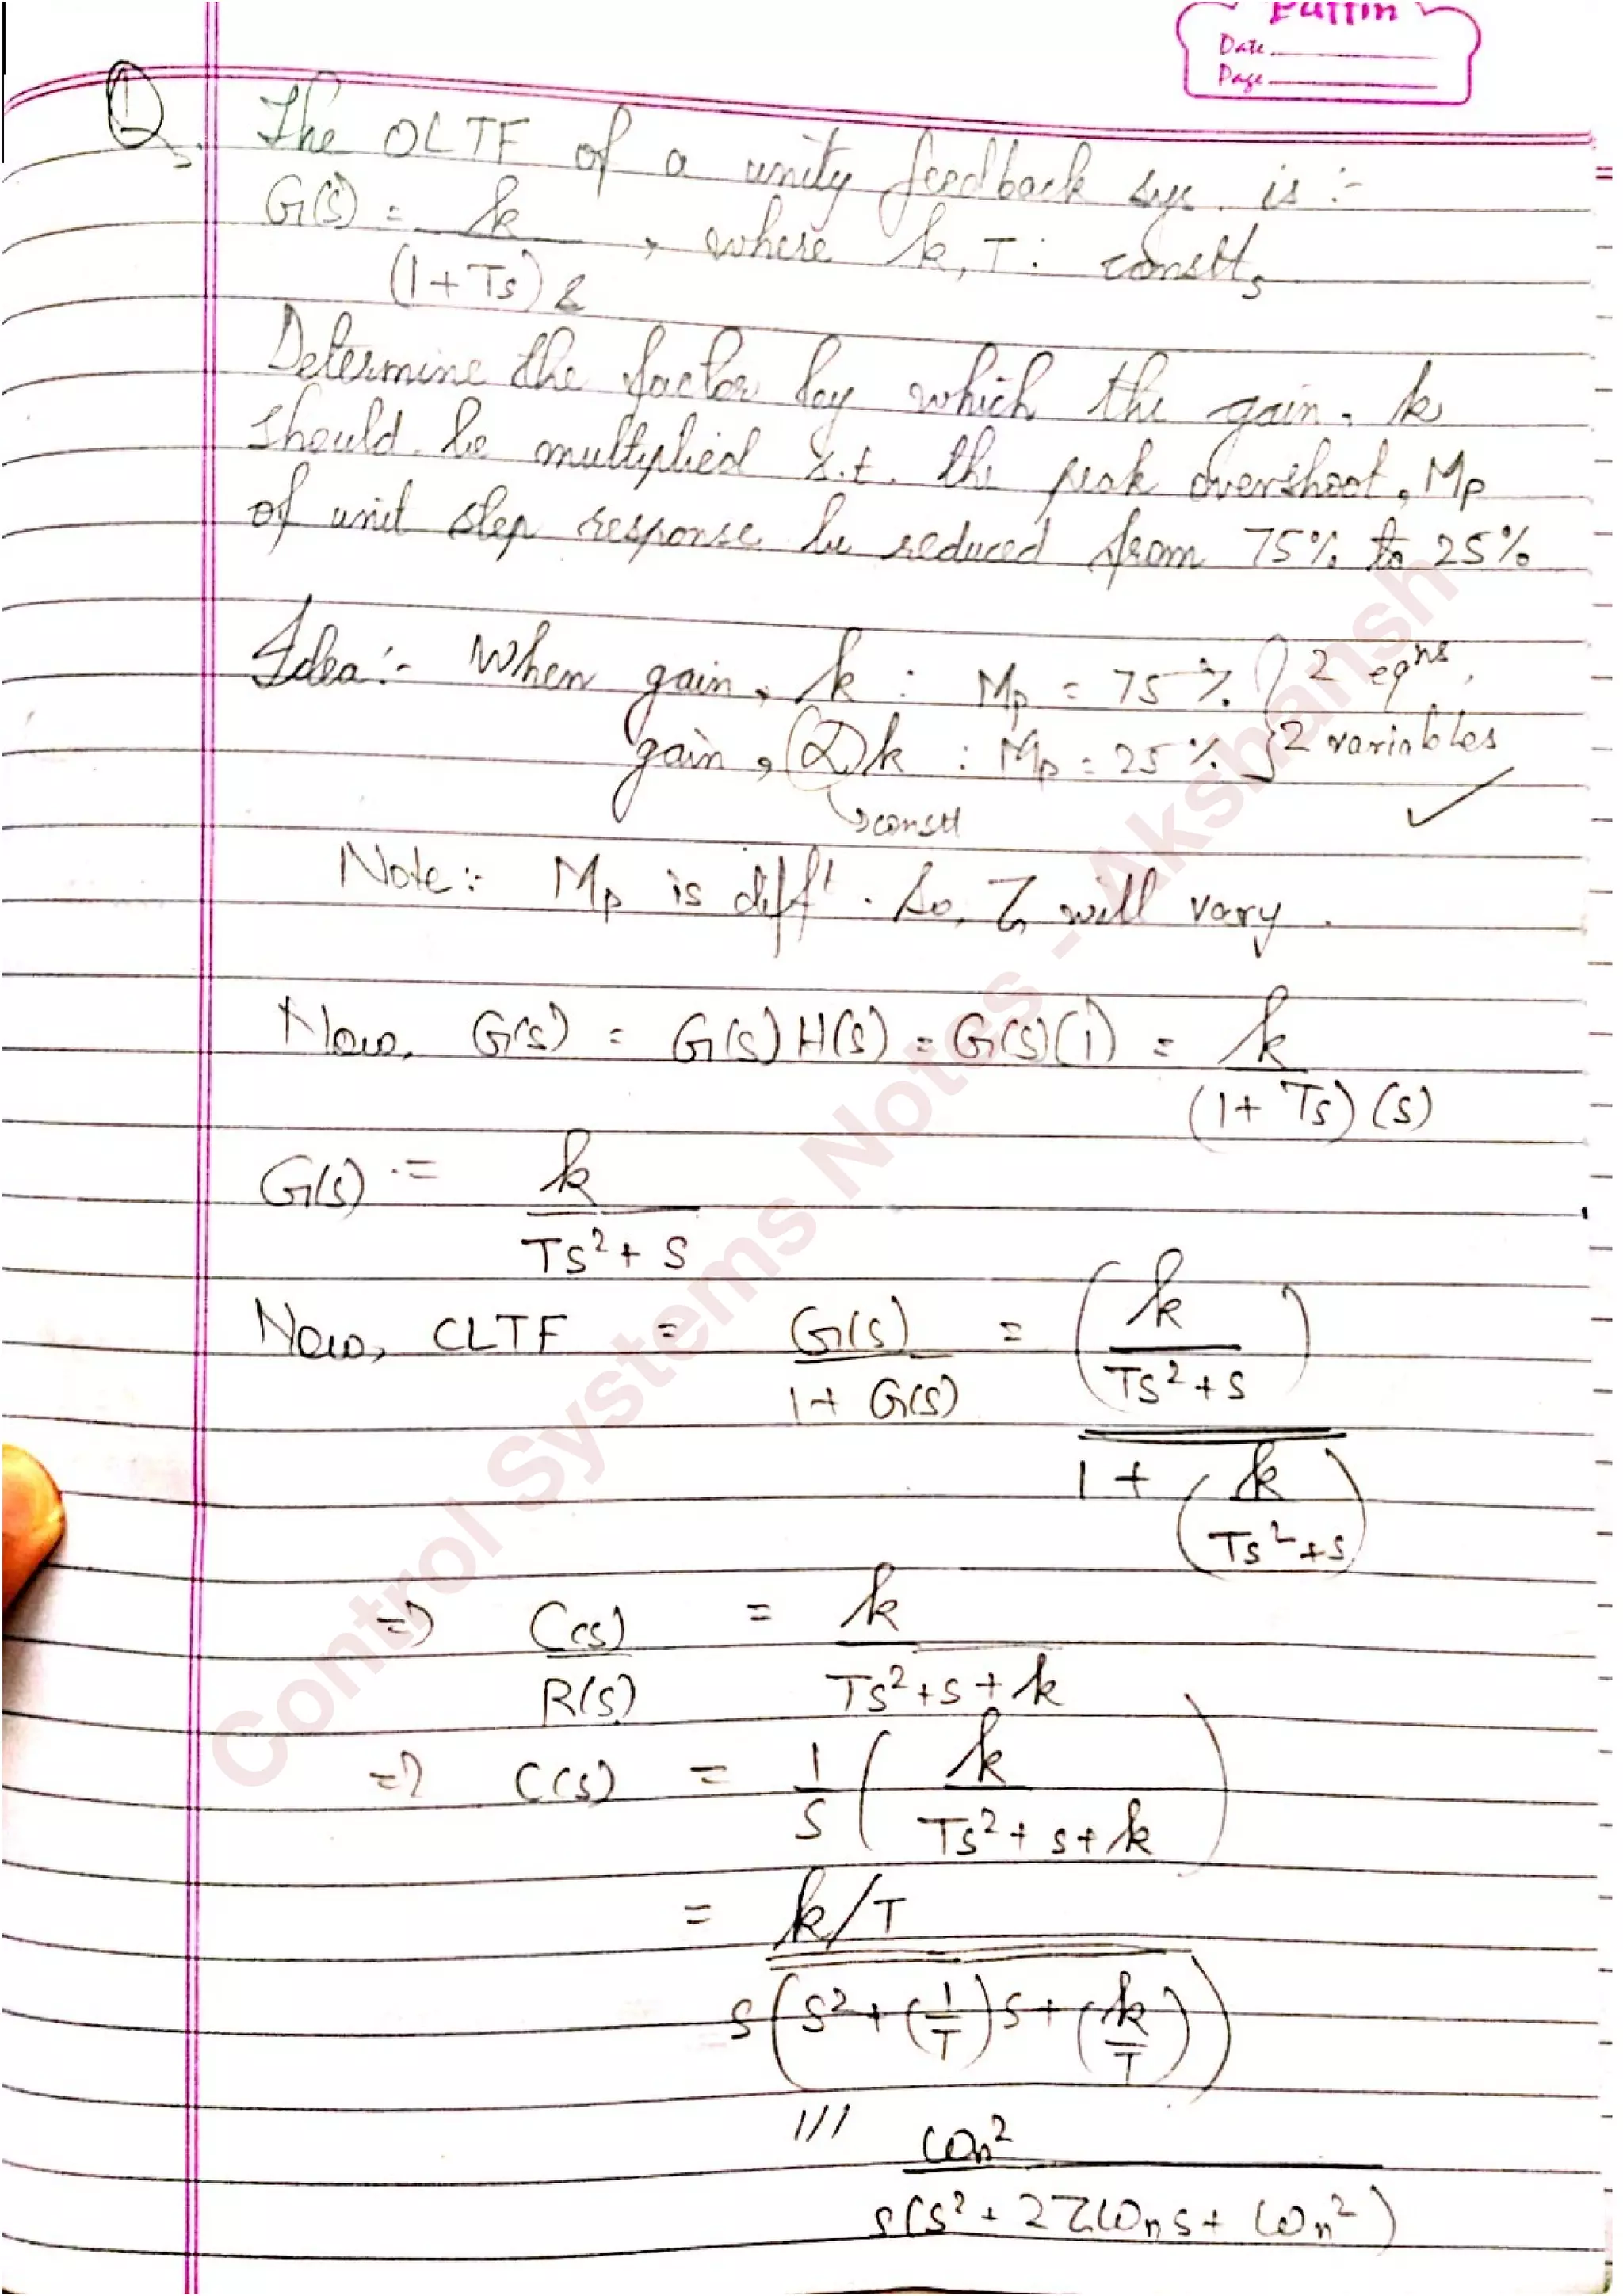 Puffin
Date
Page
Q. The OLTF of a unity feedback sys. is :-
G(s) = k / (1+Ts)s , where k, T : constt,
Determine the factor by which the gain, k
should be multiplied s.t. the peak overshoot, Mp
of unit step response be reduced from 75% to 25%
Idea :- When gain, k : Mp = 75% } 2 eqns,
gain, (α)k : Mp = 25% } 2 variables ✓
↳ constt
Note :- Mp is diff^t. So, ζ will vary.
Now, G(s) = G(s)H(s) = G(s)(1) = k / (1+Ts)(s)
G(s) = k / Ts²+s
Now, CLTF = G(s) / 1+G(s) = (k / Ts²+s) / 1+(k / Ts²+s)
=> C(s)/R(s) = k / Ts²+s+k
=> C(s) = 1/s (k / Ts²+s+k)
= k/T / s(s²+(1/T)s+(k/T))
/// ωn² / s(s²+2ζωns+ωn²)
Control Systems Notes - Akshansh